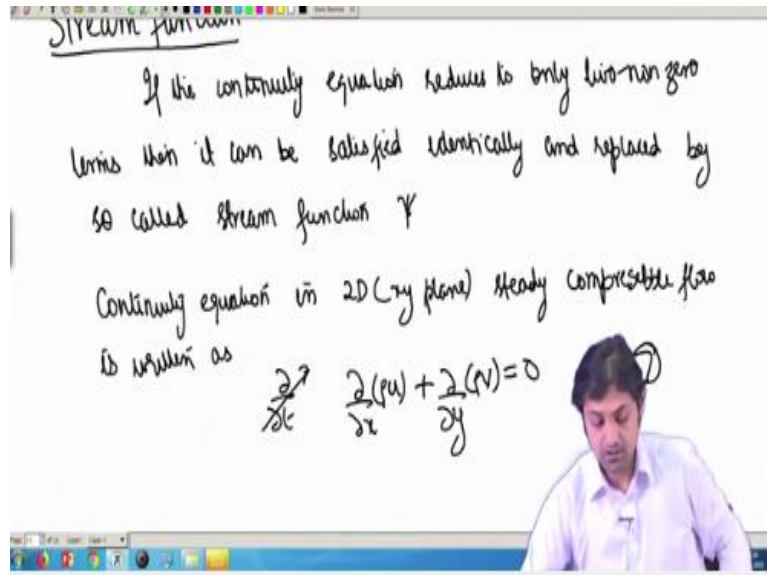 Stream function
If the continuity equation reduces to only two-non zero
terms then it can be satisfied identically and replaced by
so called stream function ψ
Continuity equation in 2D (xy plane) steady compressible flow
is written as
∂/∂t ∂/∂x (ρu) + ∂/∂y (ρv) = 0 7